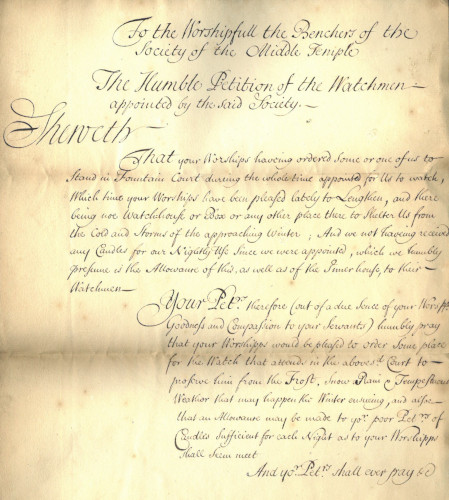 To the Worshipfull the Benchers of the
Society of the Middle Temple
The Humble Petition of the Watchmen
appointed by the said Society.
Sheweth
That your Worships haveing ordered Some or one of us to
Stand in Fountain Court dureing the whole time appointed for Us to watch,
Which time your Worships have been pleased lately to Lengthen, and there
being noe Watchhouse or Box or any other place there to Shelter Us from
the Cold and Storms of the approaching Winter, And we not haveing received
any Candles for our Nightly Use Since we were appointed, which we humbly
presume is the Allowance of this, as well as of the Inner house, to their
Watchmen
Your Petrs. therefore (out of a due Sence of your Worspps
Goodness and Compassion to your Servants) humbly pray
that your Worshipps would be pleased to order Some place
for the Watch that attends in the abovesd. Court to
preserve him from the Frost, Snow Rain & Tempestuous
Weather that may happen the Winter ensueing, and alsoe
that an Allowance may be made to yor. poor Petrs. of
Candles Sufficient for each Night as to your Worshipps
Shall Seem meet
And yor. Petrs. Shall ever pray &c